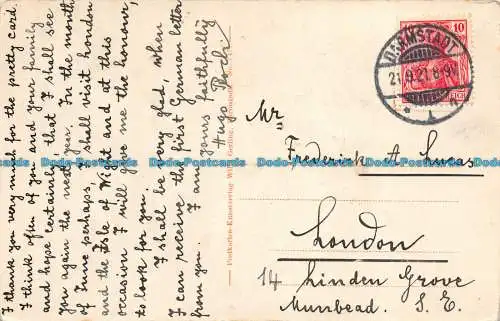 I thank you very much for the pretty card.
I think often of you and your family
and hope certainly, that I shall see
you again the next year. In the month
of June perhaps, I shall visit London
and the Isle of Wight and at this
occasion I will give me the honour,
to look for you.
I shall be very glad, when
I can receive the first German letter
from you. I am yours faithfully
Hugo
Mr.
Frederick A. Lucas
London
14 Linden Grove
Nunhead. S. E.
DARMSTADT
10
Dodo-Postcards Dodo-Postcards Dodo-Postcards Dodo-Postcards